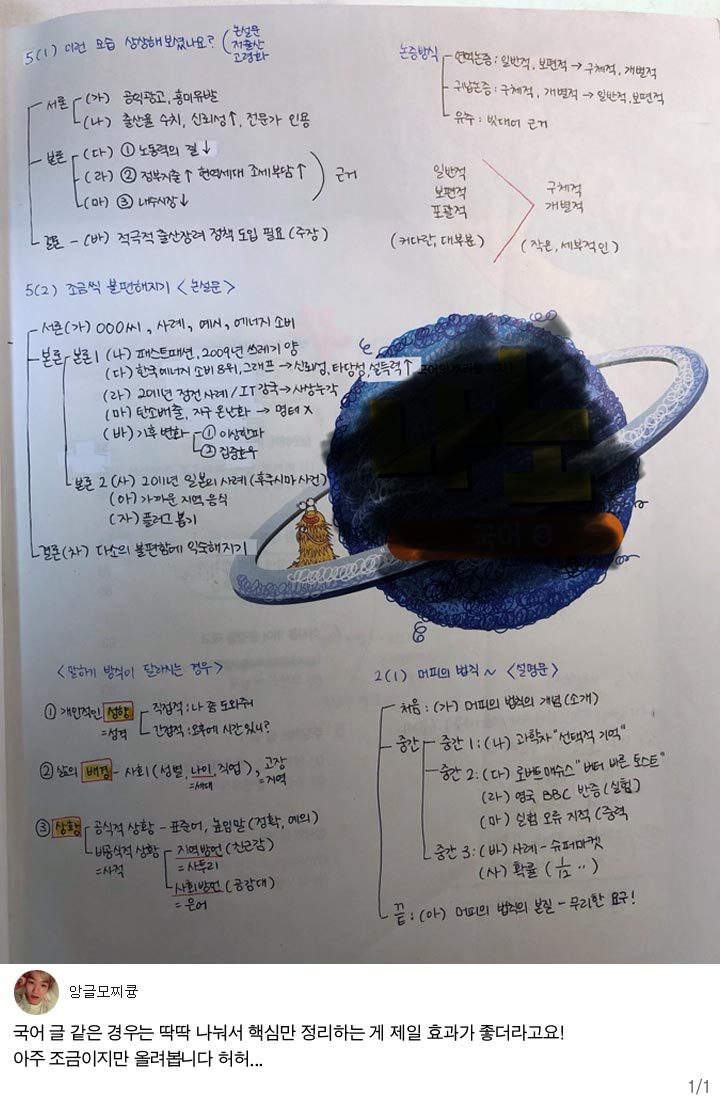 5(1) 이런 모습 상상해 보셨나요?
논설문
저출산
고령화
서론
(가) 공익광고, 흥미유발
(나) 출산율 수치, 신뢰성↑, 전문가 인용
본론
(다) ① 노동력의 질 ↓
(라) ② 정부지출↑ 현역세대 조세부담↑
(마) ③ 내수시장↓
근거
결론 - (바) 적극적 출산장려 정책 도입 필요 (주장)
논증방식
연역논증 : 일반적, 보편적 → 구체적, 개별적
귀납논증 : 구체적, 개별적 → 일반적, 보편적
유추 : 빗대어 근거
일반적
보편적
포괄적
(커다란, 대부분)
구체적
개별적
(작은, 세부적인)
5(2) 조금씩 불편해지기 <논설문>
서론 (가) OOO씨, 사례, 예시, 에너지 소비
본론
본론 1 (나) 패스트패션, 2009년 쓰레기 양
(다) 한국에너지 소비 8위, 그래프 → 신뢰성, 타당성, 설득력↑
(라) 2011년 정전 사례 / IT강국 → 사상누각
(마) 탄소배출, 지구 온난화 → 명태 X
(바) 기후 변화
① 이상한파
② 집중호우
본론 2 (사) 2011년 일본의 사례 (후쿠시마 사건)
(아) 가까운 지역 음식
(자) 플러그 뽑기
결론 (차) 다소의 불편함에 익숙해지기
국어 ③
<말하기 방식이 달라지는 경우>
① 개인적인 성향
=성격
직접적 : 나 좀 도와줘
간접적 : 오후에 시간 있니?
② 삶의 배경 - 사회 (성별, 나이, 직업), 고장
=세대
=지역
③ 상황
공식적 상황 - 표준어, 높임말 (정확, 예의)
비공식적 상황
=사적
지역방언 (친근감)
=사투리
사회방언 (공감대)
=은어
2(1) 머피의 법칙 ~ <설명문>
처음 : (가) 머피의 법칙의 개념 (소개)
중간
중간 1 : (나) 과학자 "선택적 기억"
중간 2 : (다) 로버트 매슈스 "버터 바른 토스트"
(라) 영국 BBC 반증 (실험)
(마) 실험 오류 지적 (중력
중간 3 : (바) 사례 - 슈퍼마켓
(사) 확률 ( 1/12 ‥ )
끝 : (아) 머피의 법칙의 본질 - 무리한 요구!
앙글모찌큥
국어 글 같은 경우는 딱딱 나눠서 핵심만 정리하는 게 제일 효과가 좋더라고요!
아주 조금이지만 올려봅니다 허허...
1/1